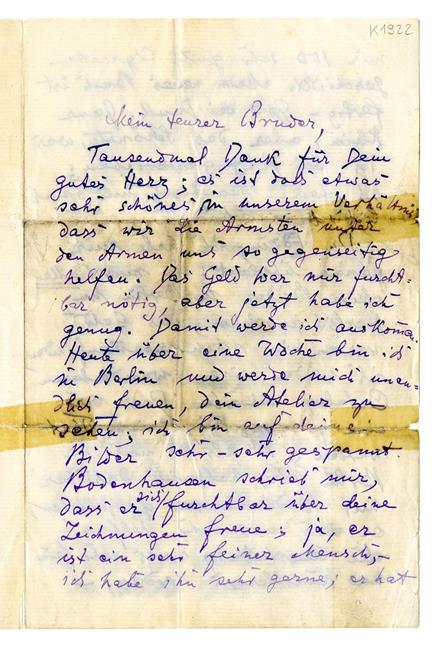 K1922
Mein teurer Bruder,
Tausendmal Dank für Dein
gutes Herz; es ist doch etwas
sehr schönes in unserem Verhältnis
dass wir die Ärmsten unter
den Armen uns so gegenseitig
helfen. Das Geld war mir furcht-
bar nötig, aber jetzt habe ich
genug. Damit werde ich auskommen.
Heute über eine Woche bin ich
in Berlin und werde mich unen-
dlich freuen, dein Atelier zu
sehen; ich bin auf deine
Bilder sehr – sehr gespannt.
Bodenhausen schrieb mir,
dass er sich furchtbar über deine
Zeichnungen freue; ja, er
ist ein sehr feiner Mensch,–
ich habe ihn sehr gerne; er hat